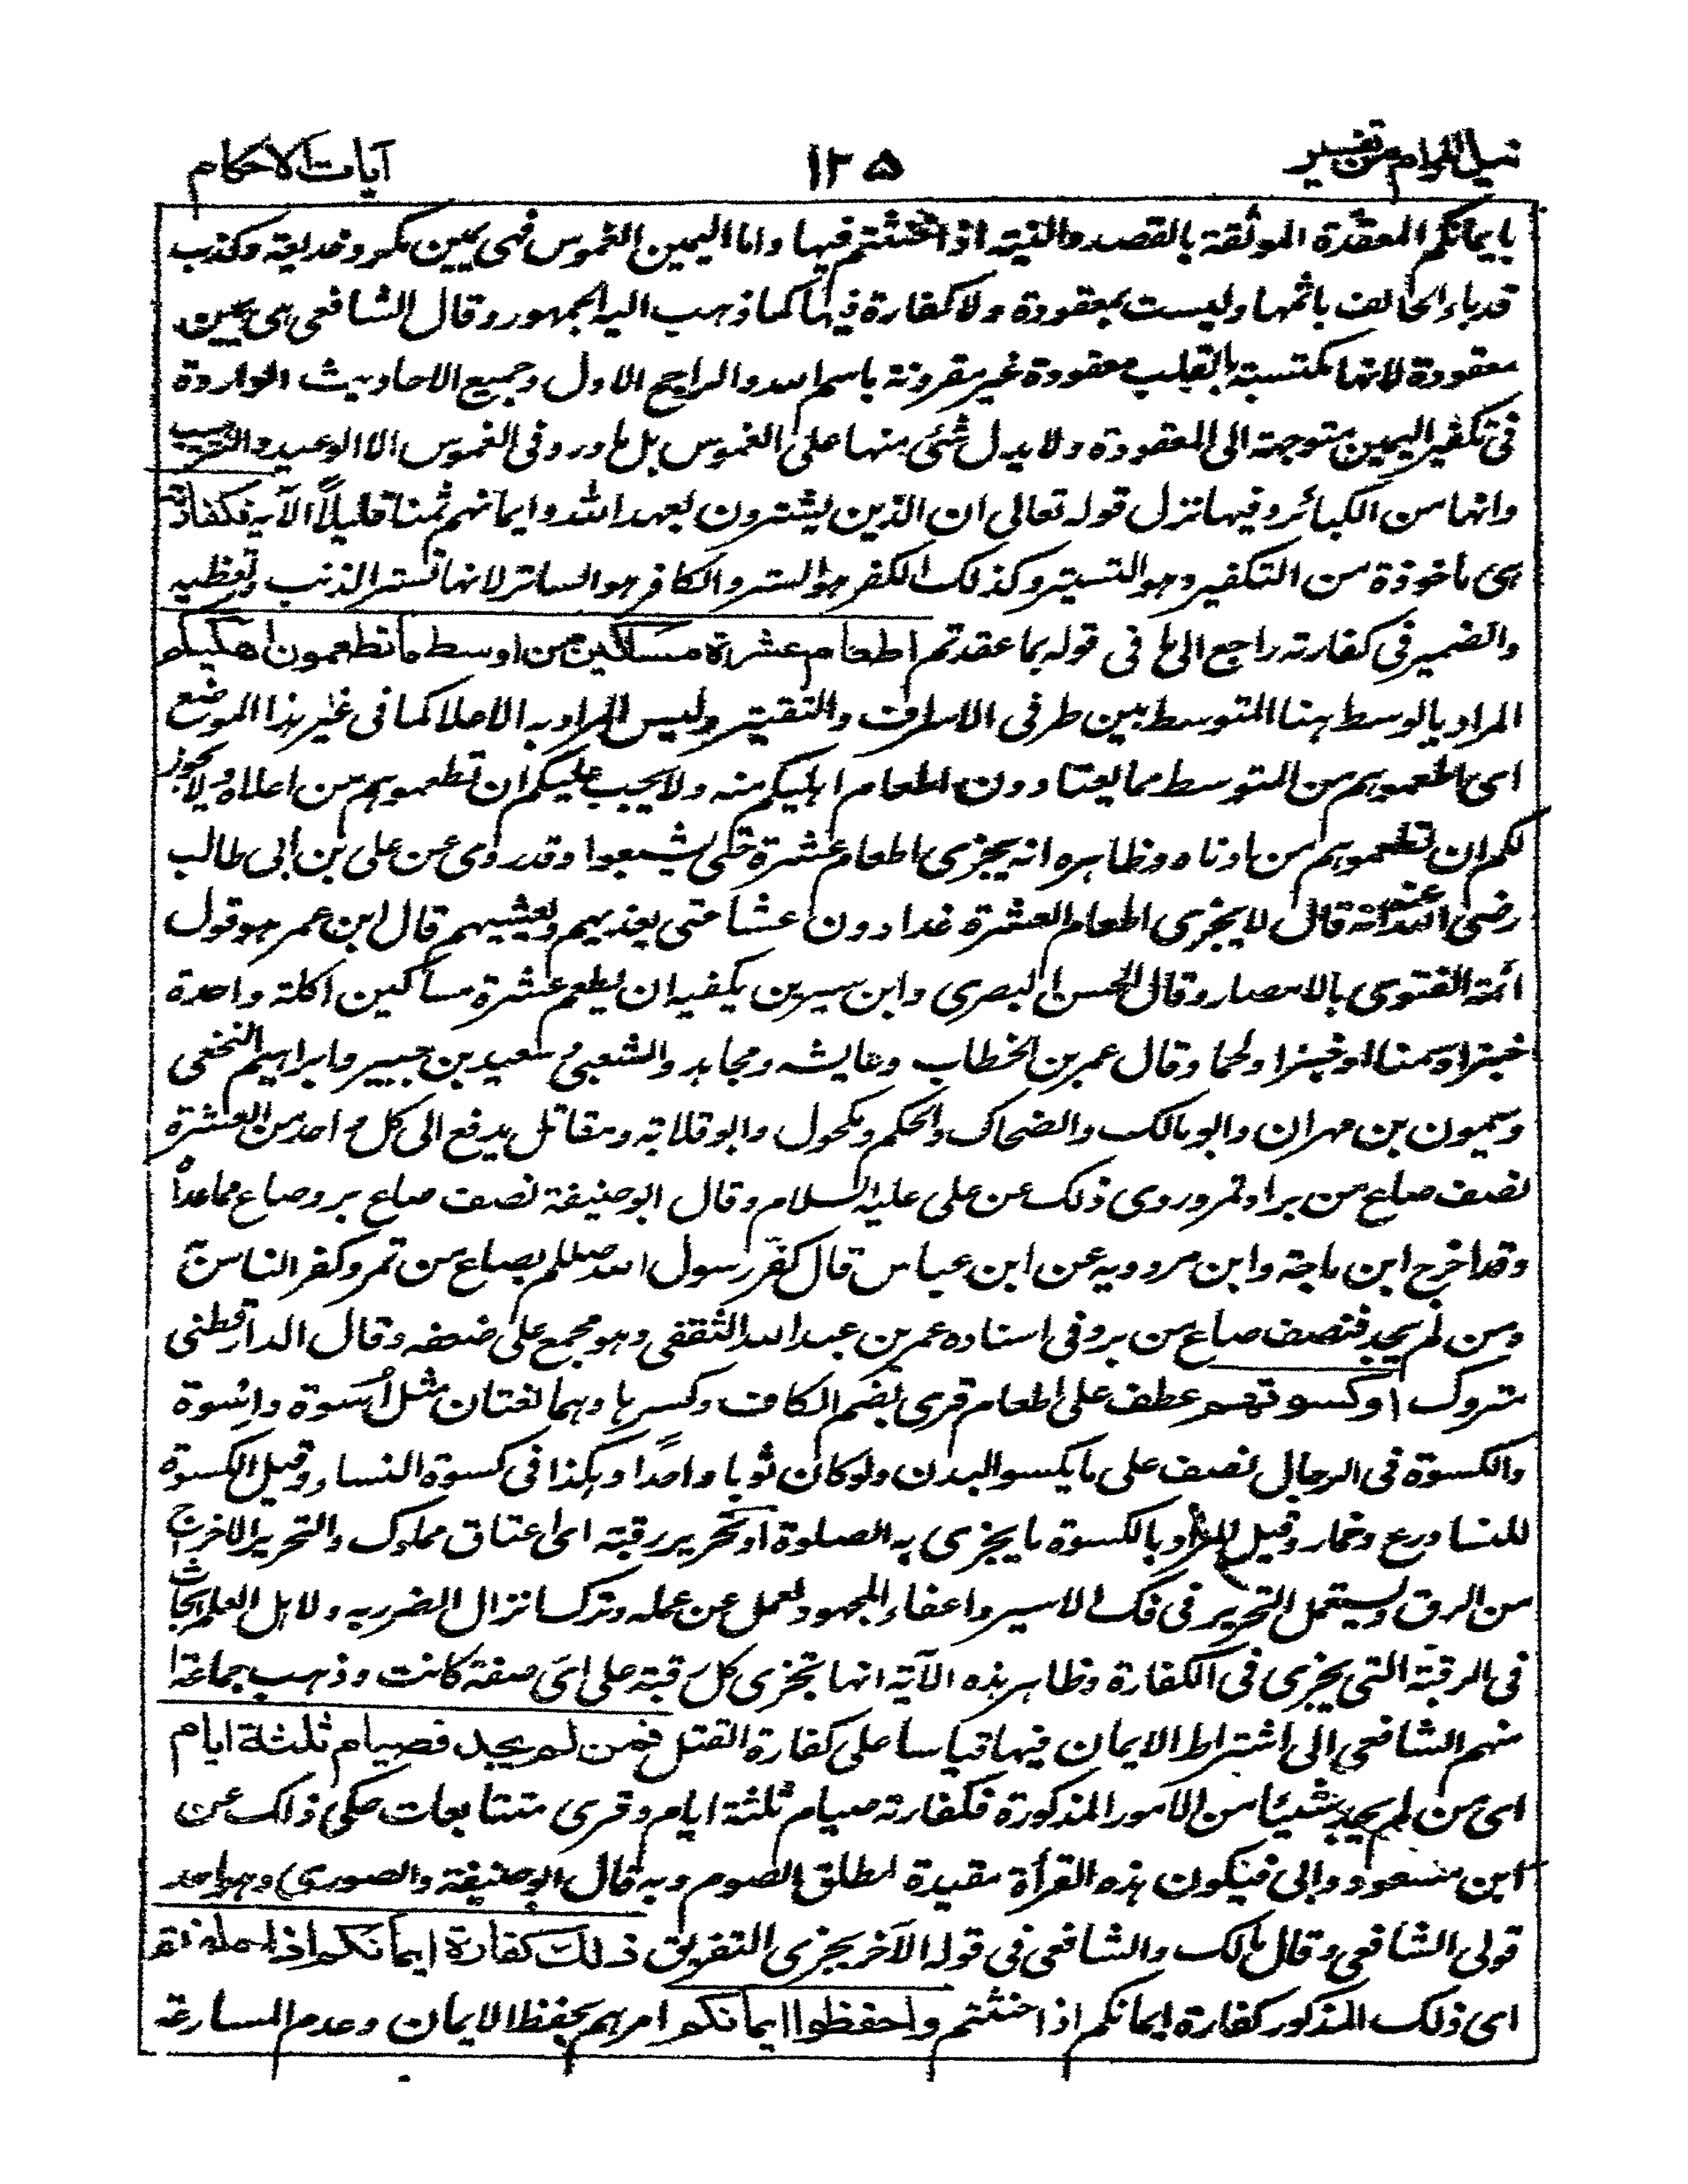 نيل المرام من تفسير
١٢٥
آيات الاحكام
بايمانكم المعقدة الموثقة بالقصد والنية اذا حنثتم فيها واما اليمين الغموس فهى يمين مكر وخديعة وكذب
قد باء الحالف باثمها وليست بمعقودة ولا كفارة فيها كما ذهب اليه الجمهور وقال الشافعى هى يمين
معقودة لانها مكتسبة بالقلب معقودة غير مقرونة باسم الله والراجح الاول وجميع الاحاديث الواردة
فى تكفير اليمين متوجهة الى المعقودة ولا يدل شئ منها على الغموس بل ما ورد فى الغموس الا الوعيد والترهيب
وانها من الكبائر وفيها نزل قوله تعالى ان الذين يشترون بعهد الله وايمانهم ثمنا قليلاً الآية فكفارته
هى ماخوذة من التكفير وهو التستير وكذلك الكفر هو الستر والكافر هو الساتر لانها تستر الذنب وتغطيه
والضمير فى كفارته راجع الى ما فى قوله بما عقدتم اطعام عشرة مساكين من اوسط ما تطعمون اهليكم
المراد بالوسط هنا المتوسط بين طرفى الاسراف والتقتير وليس المراد به الاعلا كما فى غير هذا الموضع
اى اطعموهم من المتوسط مما يعتادون اطعام اهليكم منه ولا يجب عليكم ان تطعموهم من اعلاه ولا يجوز
لكم ان تطعموهم من ادناه وظاهره انه يجزى اطعام عشرة حتى يشبعوا وقد روى عن على بن ابى طالب
رضى الله عنه انه قال لا يجزى اطعام العشرة غدا دون عشا حتى يغديهم ويعشيهم قال ابن عمر هو قول
ائمة الفتوى بالامصار وقال الحسن البصرى وابن سيرين يكفيه ان يطعم عشرة مساكين اكلة واحدة
خبزا وسمنا او خبزا ولحما وقال عمر بن الخطاب وعايشه ومجاهد والشعبى وسعيد بن جبير وابراهيم النخعى
وميمون بن مهران وابو مالك والضحاك والحكم ومكحول وابو قلابة ومقاتل يدفع الى كل واحد من العشرة
نصف صاع من بر او تمر وروى ذلك عن على عليه السلام وقال ابو حنيفة نصف صاع بر وصاع مما عداه
وقد اخرج ابن ماجة وابن مردويه عن ابن عباس قال كفّر رسول الله صلعم بصاع من تمر وكفر الناس به
ومن لم يجد فنصف صاع من بر وفى اسناده عمر بن عبد الله الثقفى وهو مجمع على ضعفه وقال الدارقطنى
متروك او كسوتهم عطف على اطعام قرى بضم الكاف وكسرها وهما لغتان مثل اُسوة واِسوة
والكسوة فى الرجال تصدق على ما يكسو البدن ولو كان ثوبا واحدًا وهكذا فى كسوة النساء وقيل الكسوة
للنسا درع وخمار وقيل المراد بالكسوة ما يجزى به الصلوة او تحرير رقبة اى اعتاق مملوك والتحرير الاخراج
من الرق ويستعمل التحرير فى فك الاسير واعفاء المجهود بعمل عن عمله وترك انزال الضرر به ولاهل العلم ابحاث
فى الرقبة التى يجزى فى الكفارة وظاهر هذه الآية انها تجزى كل رقبة على اىّ صفة كانت وذهب جماعة
منهم الشافعى الى اشتراط الايمان فيها قياسا على كفارة القتل فمن لم يجد فصيام ثلثة ايام
اى من لم يجد شيئا من الامور المذكورة فكفارته صيام ثلثة ايام وقرى متتابعات حكى ذلك عن
ابن مسعود وابى فيكون هذه القرأة مقيدة لمطلق الصوم وبه قال ابو حنيفة والثورى وهو احد
قولى الشافعى وقال مالك والشافعى فى قوله الآخر يجزى التفريق ذلك كفارة ايمانكم اذا حلفتم
اى ذلك المذكور كفارة ايمانكم اذا حنثتم واحفظوا ايمانكم امرهم بحفظ الايمان وعدم المسارعة